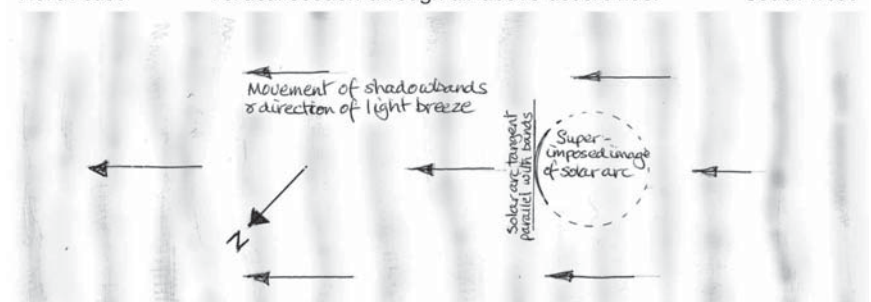 Movement of shadowbands
& direction of light breeze
solar arc tangent
parallel with bands
Super-
imposed image
of solar arc
N